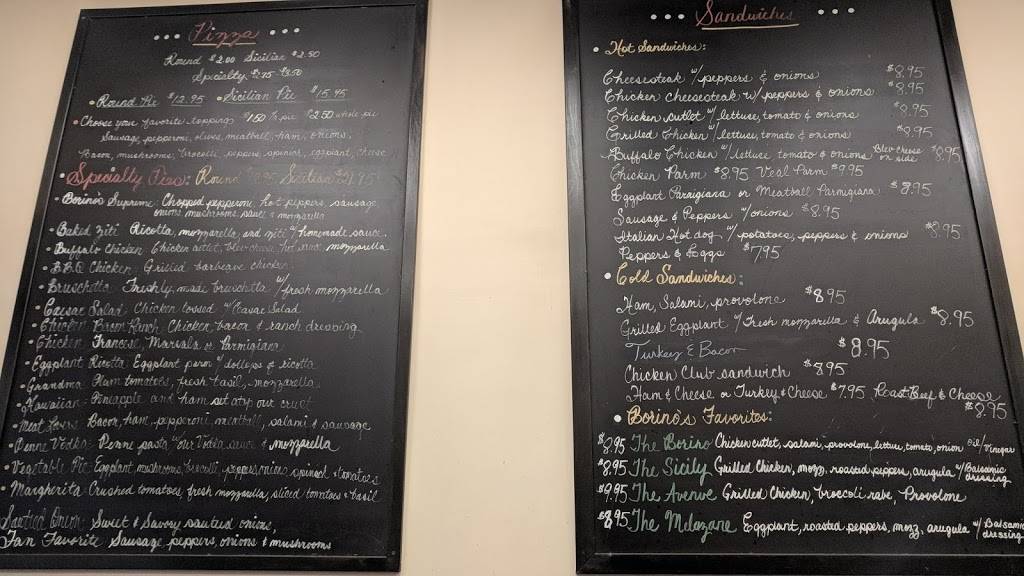 Pizza
Round $2.00 Sicilian $2.50
Specialty
Round Pie $12.95 Sicilian Pie $15.95
Choose your favorite toppings $1.50 ½ pie $2.50 whole pie
Sausage, pepperoni, olives, meatball, ham, onions,
Bacon, mushrooms, brocolli, peppers, spinach, eggplant, cheese
Specialty Pies: Round Sicilian
Borino's Supreme Chopped pepperoni, hot peppers, sausage
onions mushrooms sauce & mozzarella
Baked Ziti Ricotta, mozzarella, and ziti w/ homemade sauce.
Buffalo Chicken Chicken cutlet, blew cheese hot sauce mozzarella
B.B.Q Chicken, Grilled barbeque chicken
Bruschetta Freshly, made bruschetta w/ fresh mozzarella
Caesar Salad Chicken tossed w/ Caesar Salad
Chicken Bacon Ranch, Chicken, bacon & ranch dressing
Chicken Francese, Marsala or Parmigiana
Eggplant Ricotta Eggplant parm w/ dollops of ricotta
Grandma Plum tomatoes, fresh basil, mozzarella
Hawaiian Pineapple and ham set atop our crust
Meat Lovers Bacon, ham, pepperoni meatball, salami & sausage
Penne Vodka Penne pasta, w/ our Vodka sauce & mozzarella
Vegetable Pie Eggplant, mushrooms, brocolli, peppers, onions, spinach & tomatoes
Margherita Crushed tomatoes, fresh mozzarella, sliced tomatoes & basil
Sautied Onion Sweet & Savory sautied onions
Fan Favorite Sausage, peppers, onions & mushrooms
Sandwiches
Hot Sandwiches:
Cheesesteak w/ peppers & onions $8.95
Chicken cheesesteak w/ peppers & onions $8.95
Chicken cutlet w/ lettuce, tomato & onions $8.95
Grilled Chicken w/ lettuce, tomato & onions $8.95
Buffalo Chicken w/ lettuce tomato & onions Blew cheese on side $8.95
Chicken Parm $8.95 Veal Parm $9.95
Eggplant Parmigiana or Meatball Parmigiana $8.95
Sausage & Peppers w/ onions $8.95
Italian Hot dog w/ potatoes, peppers & onions $8.95
Peppers & Eggs $7.95
Cold Sandwiches:
Ham, Salami, provolone $8.95
Grilled Eggplant w/ Fresh mozzarella & Arugula $8.95
Turkey & Bacon $8.95
Chicken Club sandwich $8.95
Ham & Cheese or Turkey & Cheese $7.95 Roast Beef & Cheese
$8.95
Borino's Favorites:
$8.95 The Borino Chicken cutlet, salami, provolone, lettuce, tomato, onion oil/vinegar
$8.95 The Sicily Grilled Chicken, mozz, roasted peppers, arugula w/ Balsamic dressing
$9.95 The Avenue Grilled Chicken, broccoli rabe, Provolone
$8.95 The Melazane Eggplant, roasted peppers, mozz, arugula w/ Balsamic dressing